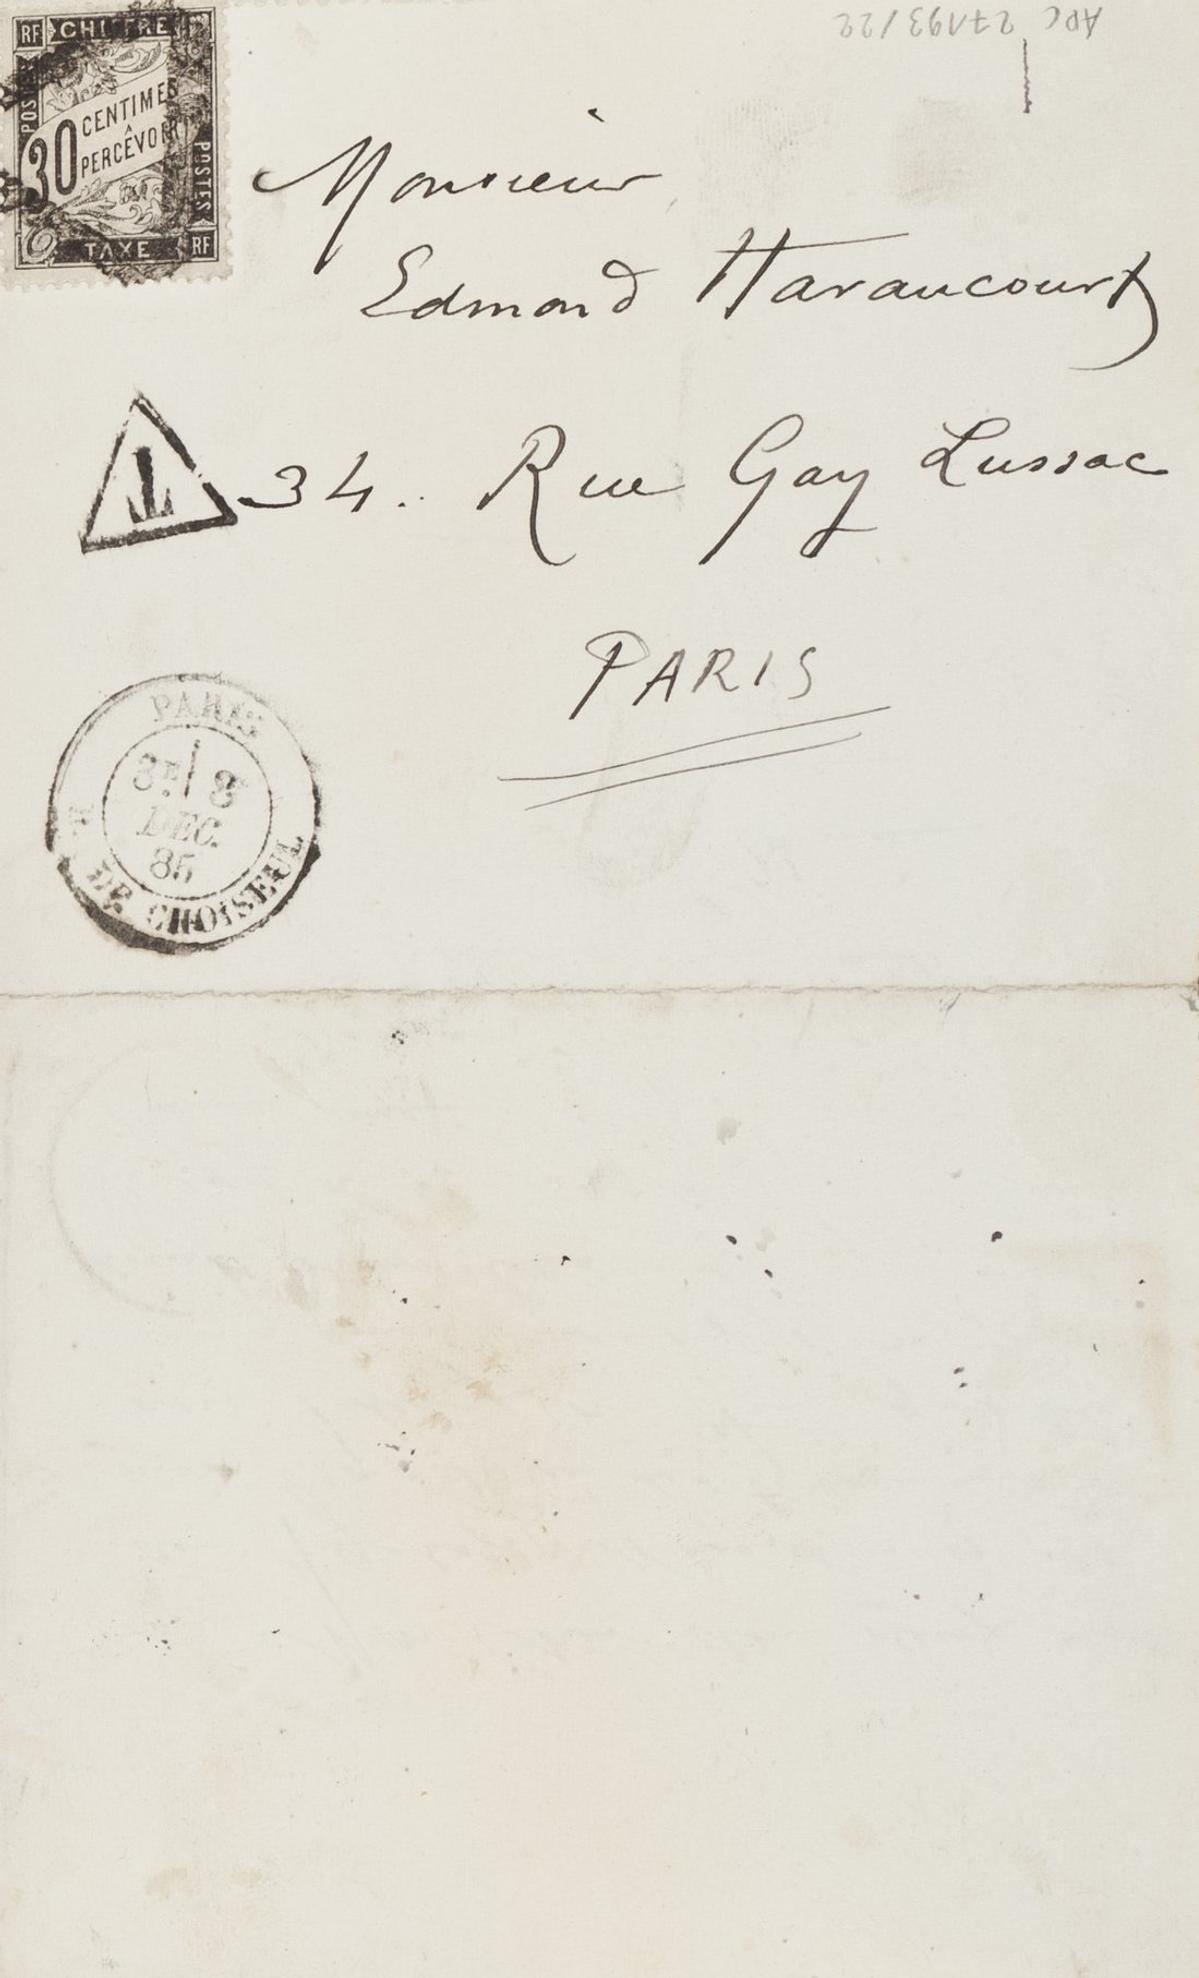 RF CHIFFRE
POSTES
30 CENTIMES
À
PERCEVOIR
POSTES
TAXE RF
APC 27193/22
Monsieur
Edmond Haraucourt
T
34. Rue Gay Lussac
PARIS
PARIS
8
DEC.
85
DE CHOISEUL